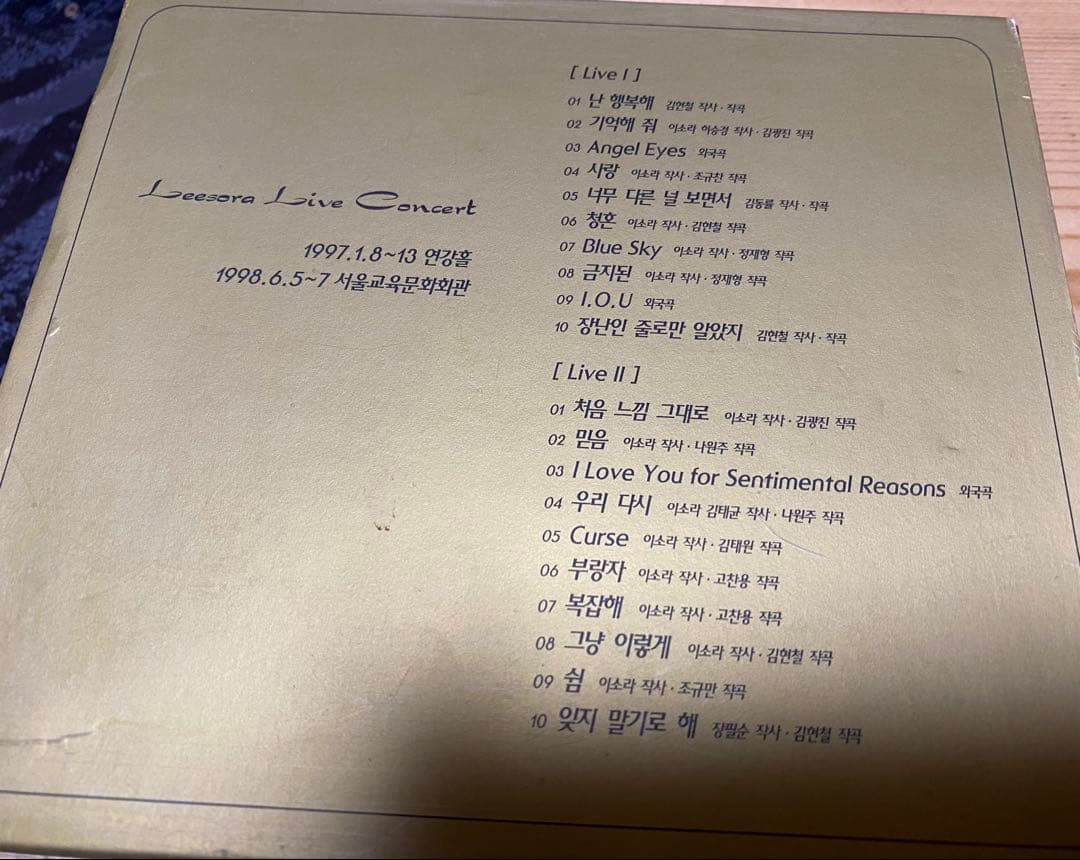 Leesora Live Concert
1997.1.8~13 연강홀
1998.6.5~7 서울교육문화회관
[ Live I ]
01 난 행복해 김현철 작사·작곡
02 기억해 줘 이소라 하승경 작사·김광진 작곡
03 Angel Eyes 외국곡
04 사랑 이소라 작사·조규찬 작곡
05 너무 다른 널 보면서 김동률 작사·작곡
06 청혼 이소라 작사·김현철 작곡
07 Blue Sky 이소라 작사·정재형 작곡
08 금지된 이소라 작사·정재형 작곡
09 I.O.U 외국곡
10 장난인 줄로만 알았지 김현철 작사·작곡
[ Live II ]
01 처음 느낌 그대로 이소라 작사·김광진 작곡
02 믿음 이소라 작사·나원주 작곡
03 I Love You for Sentimental Reasons 외국곡
04 우리 다시 이소라 김태균 작사·나원주 작곡
05 Curse 이소라 작사·김태원 작곡
06 부랑자 이소라 작사·고찬용 작곡
07 복잡해 이소라 작사·고찬용 작곡
08 그냥 이렇게 이소라 작사·김현철 작곡
09 쉼 이소라 작사·조규만 작곡
10 잊지 말기로 해 장필순 작사·김현철 작곡